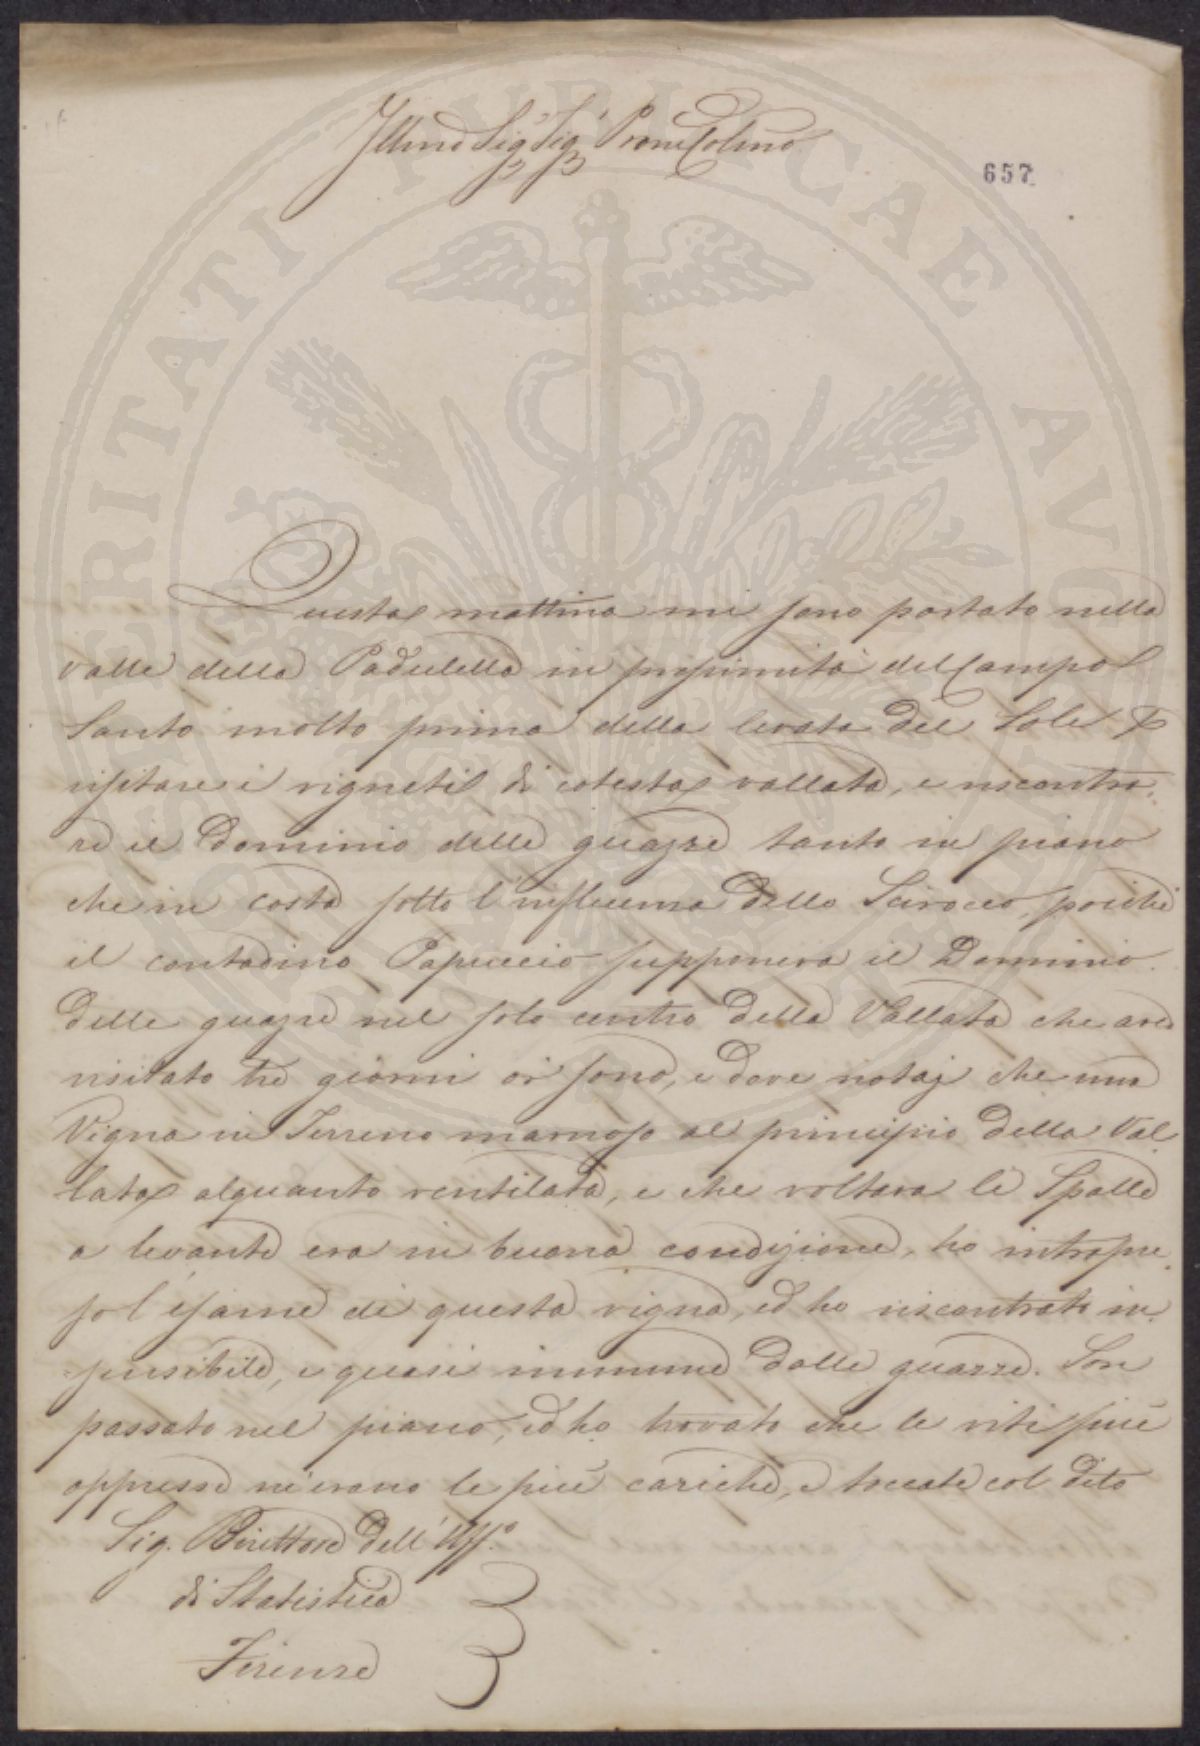 Illmo Sig.r Sig.r Prone Colmo
657
Questa mattina mi sono portato nella
valle della Padulella in prossimità del Campo
Santo molto prima della levata del Sole p
visitare i vigneti di cotesta vallata, e riscontra
re il dominio delle guazze tanto in piano
che in costa sotto l'influenza dello Scirocco, poichè
il contadino Papuccio supponeva il Dominio
delle guazze nel solo centro della Vallata che aveo
visitato tre giorni or sono, e dove notaj che una
Vigna in Terreno marnoso al principio della Val
lata alquanto ventilata, e che voltava le Spalle
a levante era in buona condizione, ho intrapre
so l'esame di questa vigna, ed ho riscontrato in
sensibile, e quasi immune dalle guazze. Son
passato nel piano, ed ho trovato che le viti più
oppresse n'erano le più cariche, e toccate col dito
Sig. Direttore dell'Uff.o
di Statistica
Firenze